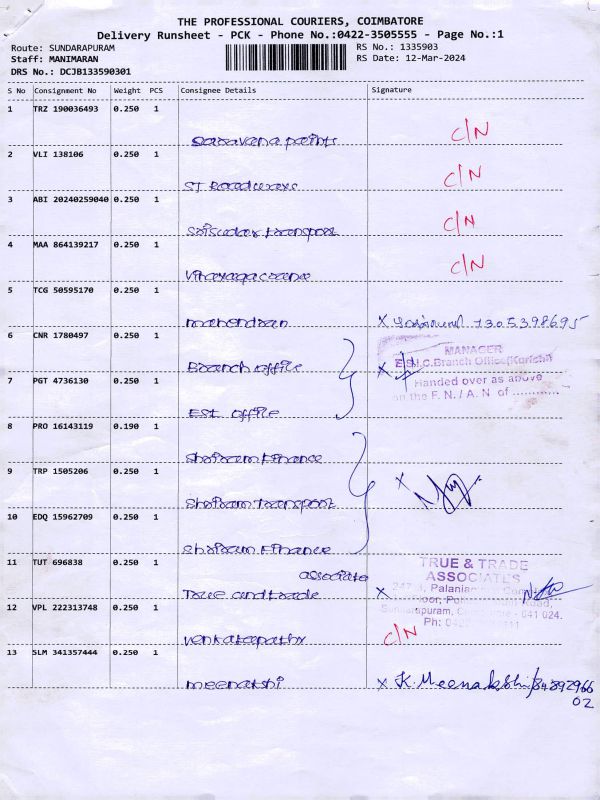 THE PROFESSIONAL COURIERS, COIMBATORE
Delivery Runsheet - PCK - Phone No.:0422-3505555 - Page No.:1
Route: SUNDARAPURAM
RS No.: 1335903
Staff: MANIMARAN
RS Date: 12-Mar-2024
DRS No.: DCJB133590301
S No Consignment No Weight PCS Consignee Details Signature
1 TRZ 190036493 0.250 1
Saravana paints C/N
2 VLI 138106 0.250 1
ST Roadways C/N
3 ABI 20240259040 0.250 1
transport C/N
4 MAA 864139217 0.250 1
C/N
5 TCG 50595170 0.250 1
mahendran X 7305398695
6 CNR 1780497 0.250 1
Branch office X
MANAGER
E.S.I.C. Branch Office (Kurichi)
Handed over as above
on the F. N. / A. N of ............
7 PGT 4736130 0.250 1
ESI office
8 PRO 16143119 0.190 1
Shriram Finance
9 TRP 1505206 0.250 1
Shriram Transport X
10 EDQ 15962709 0.250 1
Shriram Finance
11 TUT 696838 0.250 1
associate
True and trade X
TRUE & TRADE
ASSOCIATES
Floor, Road,
Sundarapuram, - 641 024.
Ph: 0422
12 VPL 222313748 0.250 1
Venkatapathy C/N
13 SLM 341357444 0.250 1
meenakshi X K. Meenakshi/84892966
02